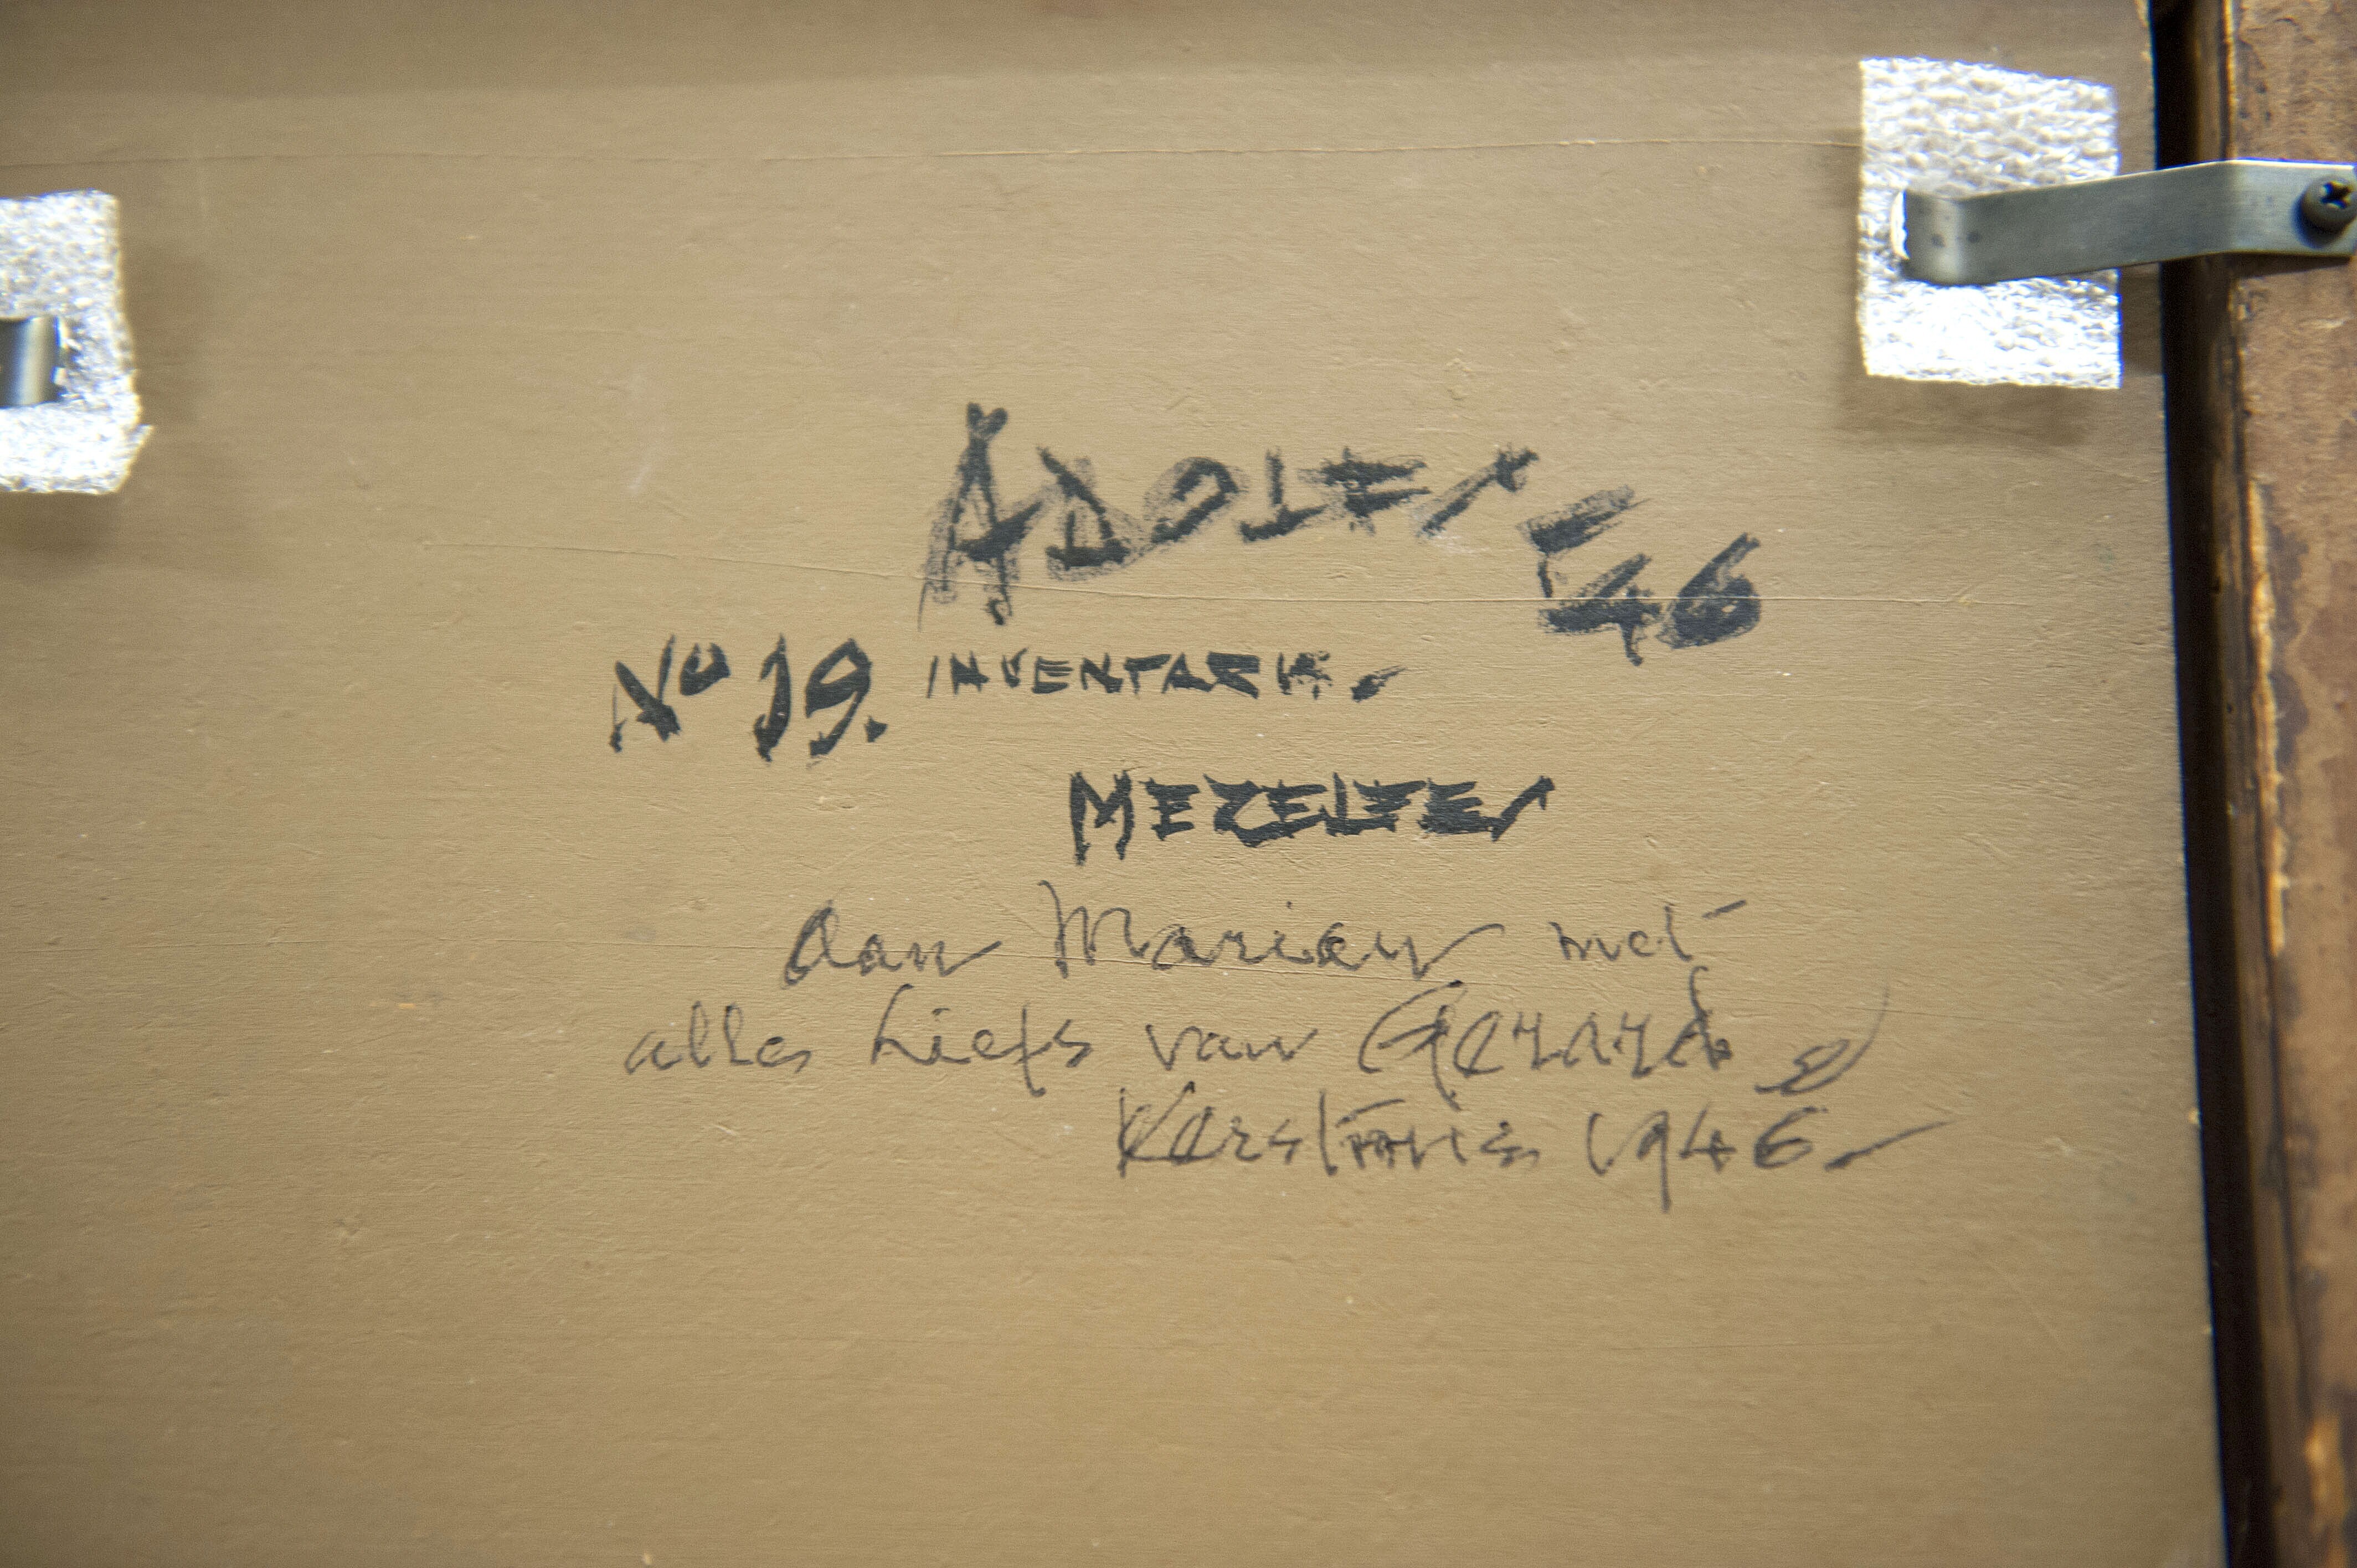 ADOLFS
46
No 19. INVENTARIS.
MEZELFES
Aan Marian met
alles Liefs van Gerard
Kerstmis 1946